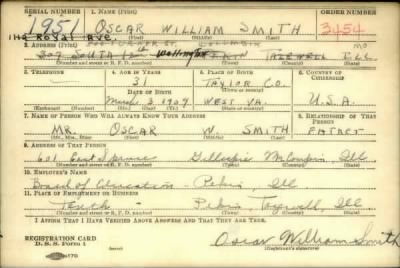 SERIAL NUMBER 1. NAME (Print) ORDER NUMBER
1951 OSCAR WILLIAM SMITH 3454
(First) (Middle) (Last)
1116 Royal Ave. COLUMBIA MO
2. ADDRESS (Print)
307 SOUTH Washington PEKIN TAZEWELL ILL.
(Number and street or R. F. D. number) (Town) (County) (State)
3. TELEPHONE 4. AGE IN YEARS 5. PLACE OF BIRTH 6. COUNTRY OF CITIZENSHIP
31 TAYLOR CO.
DATE OF BIRTH
3 1909 WEST VA. U.S.A.
(Exchange) (Number) (Mo.) (Day) (Yr.) (State or country)
7. NAME OF PERSON WHO WILL ALWAYS KNOW YOUR ADDRESS 8. RELATIONSHIP OF THAT PERSON
MR. OSCAR W. SMITH FATHER
(Mr., Mrs., Miss) (First) (Middle) (Last)
9. ADDRESS OF THAT PERSON
601 East Spruce Gillespie Macoupin, Ill
(Number and street or R. F. D. number) (Town) (County) (State)
10. EMPLOYER'S NAME
Board of Education - Pekin, Ill
11. PLACE OF EMPLOYMENT OR BUSINESS
Tenth - Pekin Tazewell, Ill
(Number and street or R. F. D. number) (Town) (County) (State)
I AFFIRM THAT I HAVE VERIFIED ABOVE ANSWERS AND THAT THEY ARE TRUE.
REGISTRATION CARD
D. S. S. Form 1
Oscar William Smith
(Registrant's signature)